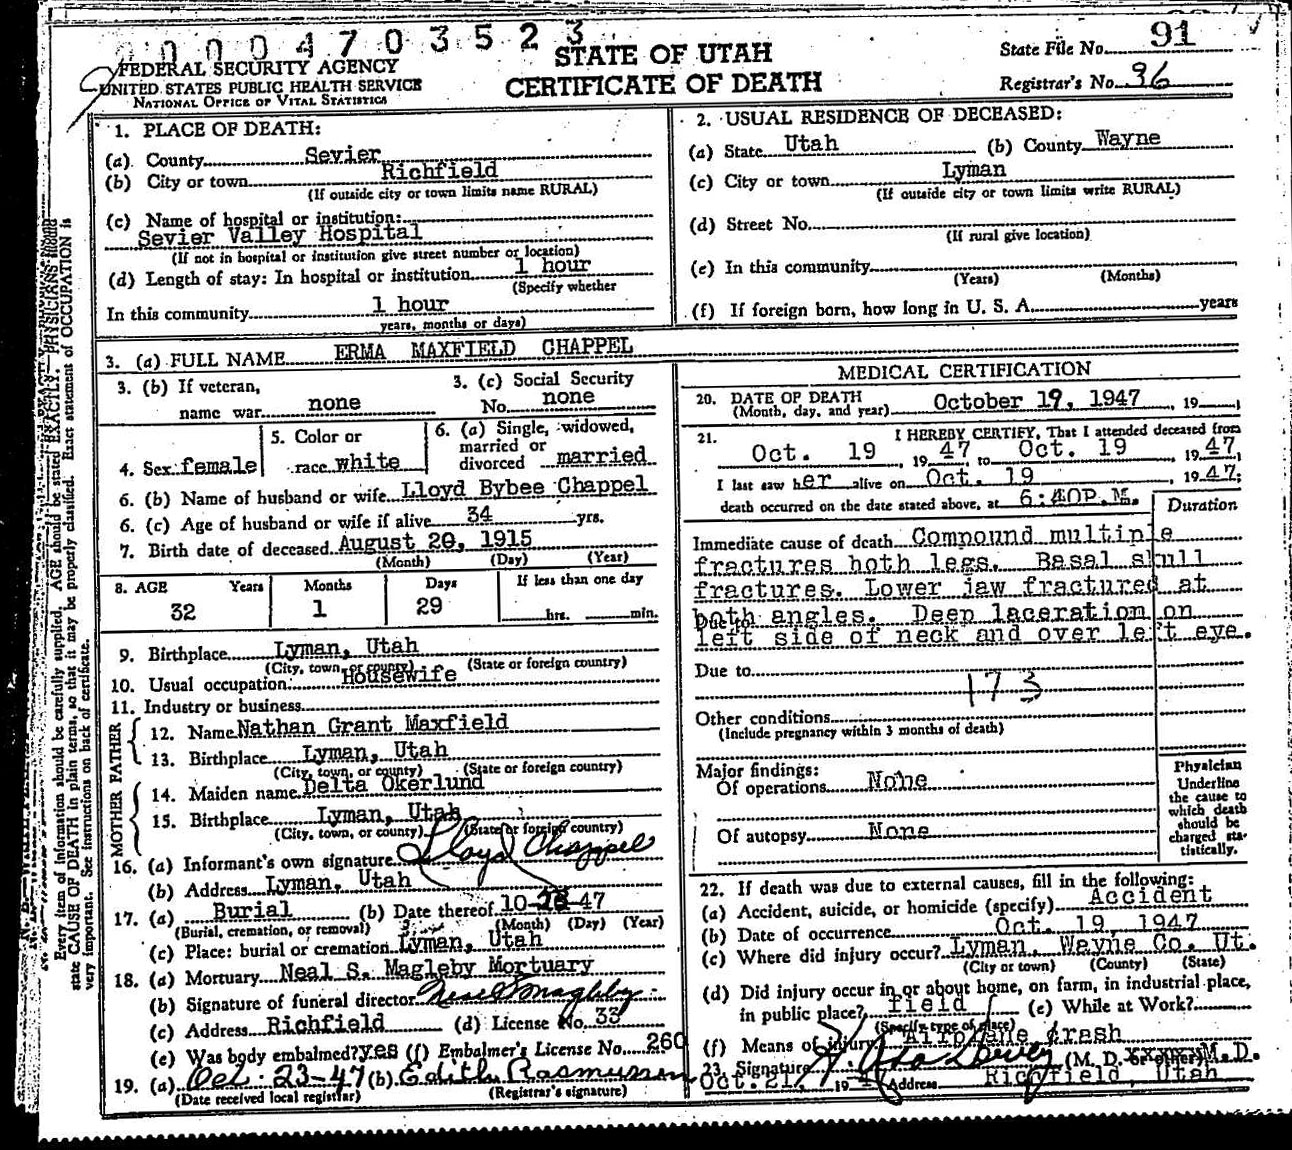 00004703523
STATE OF UTAH
CERTIFICATE OF DEATH
FEDERAL SECURITY AGENCY
UNITED STATES PUBLIC HEALTH SERVICE
NATIONAL OFFICE OF VITAL STATISTICS
State File No. 91
Registrar's No. 96
1. PLACE OF DEATH:
(a) County Sevier
(b) City or town Richfield
(If outside city or town limits name RURAL)
(c) Name of hospital or institution:
Sevier Valley Hospital
(If not in hospital or institution give street number or location)
(d) Length of stay: In hospital or institution 1 hour
(Specify whether
In this community 1 hour
years, months or days)
2. USUAL RESIDENCE OF DECEASED:
(a) State Utah (b) County Wayne
(c) City or town Lyman
(If outside city or town limits write RURAL)
(d) Street No.
(If rural give location)
(e) In this community
(Years) (Months)
(f) If foreign born, how long in U. S. A. years
3. (a) FULL NAME ERMA MAXFIELD CHAPPEL
3. (b) If veteran,
name war none
3. (c) Social Security
No. none
4. Sex female
5. Color or
race white
6. (a) Single, widowed,
married or
divorced married
6. (b) Name of husband or wife Lloyd Bybee Chappel
6. (c) Age of husband or wife if alive 34 yrs.
7. Birth date of deceased August 20, 1915
(Month) (Day) (Year)
8. AGE Years Months Days If less than one day
32 1 29 hrs. min.
9. Birthplace Lyman, Utah
(City, town, or county) (State or foreign country)
10. Usual occupation Housewife
11. Industry or business
FATHER
12. Name Nathan Grant Maxfield
13. Birthplace Lyman, Utah
(City, town, or county) (State or foreign country)
MOTHER
14. Maiden name Delta Okerlund
15. Birthplace Lyman, Utah
(City, town, or county) (State or foreign country)
16. (a) Informant's own signature Lloyd Chappel
(b) Address Lyman, Utah
17. (a) Burial (b) Date thereof 10- -47
(Burial, cremation, or removal) (Month) (Day) (Year)
(c) Place: burial or cremation Lyman, Utah
18. (a) Mortuary Neal S. Magleby Mortuary
(b) Signature of funeral director Neal S Magleby
(c) Address Richfield (d) License No. 33
(e) Was body embalmed? yes (f) Embalmer's License No. 260
19. (a) Oct. 23-47 (b) Edith Rasmussen
(Date received local registrar) (Registrar's signature)
MEDICAL CERTIFICATION
20. DATE OF DEATH
(Month, day, and year) October 19, 1947, 19
21. I HEREBY CERTIFY, That I attended deceased from
Oct. 19, 1947 to Oct. 19, 1947
I last saw her alive on Oct. 19, 1947;
death occurred on the date stated above, at 6:40P.M.
Duration
Immediate cause of death Compound multiple
fractures both legs. Basal skull
fractures. Lower jaw fractured at
both angles. Deep laceration on
left side of neck and over left eye.
Due to
173
Other conditions
(Include pregnancy within 3 months of death)
Major findings:
Of operations None
Of autopsy None
Physician
Underline
the cause to
which death
should be
charged sta-
tistically.
22. If death was due to external causes, fill in the following:
(a) Accident, suicide, or homicide (specify) Accident
(b) Date of occurrence Oct. 19, 1947
(c) Where did injury occur? Lyman, Wayne Co. Ut.
(City or town) (County) (State)
(d) Did injury occur in or about home, on farm, in industrial place,
in public place? field (e) While at Work?
(Specify type of place)
(f) Means of injury Airplane crash
23. Signature (M. D. or other) M.D.
Oct. 21, 19 Address Richfield, Utah
Every item of information should be carefully supplied. AGE should be stated EXACTLY. PHYSICIANS should
state CAUSE OF DEATH in plain terms, so that it may be properly classified. Exact statement of OCCUPATION is
very important. See instructions on back of certificate.